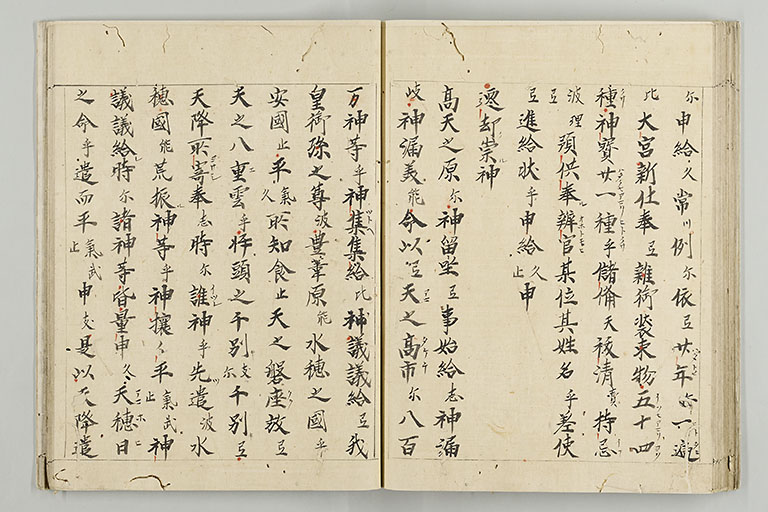 尓申給久常川例尓依弖廿年尓一遍
比大宮新仕奉弖雑御装束物五十四
種神寶廿一種乎儲備天祓清賣持忌
波理預供奉辨官某位某姓名乎差使
弖進給状乎申給久止申
遷却祟神
髙天之原尓神留坐弖事始給志神漏
岐神漏美能命以弖天之髙市尓八百
万神等乎神集集給比神議議給弖我
皇御孫之尊波豊葦原能水穂之國乎
安國止平氣久所知食止天之磐座放弖
天之八重雲乎伊頭之千別尓千別弖
天降所寄奉志時尓誰神乎先遣波水
穂國能荒振神等乎神攘々平氣武止神
議議給時尓諸神等皆量申久天穂日
之命乎遣而平氣武止申支是以天降遣